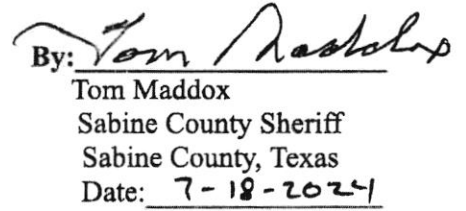 By: Tom Maddox
Tom Maddox
Sabine County Sheriff
Sabine County, Texas
Date: 7-18-2024